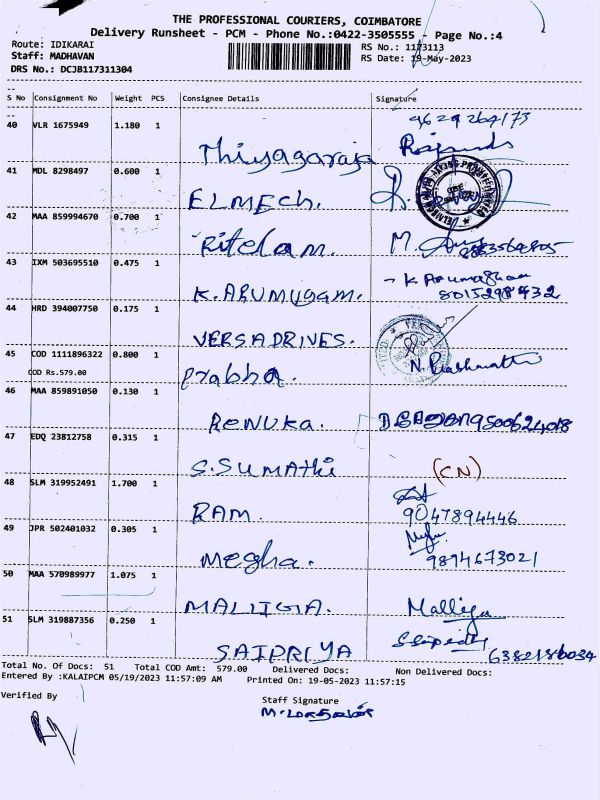 THE PROFESSIONAL COURIERS, COIMBATORE
Delivery Runsheet - PCM - Phone No.:0422-3505555 - Page No.:4
Route: IDIKARAI RS No.: 1173113
Staff: MADHAVAN RS Date: 19-May-2023
DRS No.: DCJB117311304
S No Consignment No Weight PCS Consignee Details Signature
9629264173
40 VLR 1675949 1.180 1
Thiyagaraja
41 MDL 8298497 0.600 1
ELMECh.
42 MAA 859994670 0.700 1
Ritelam. M.
43 IXM 503695510 0.475 1
K. Arumugham
K. ARUMUGAM. 8015298432
44 HRD 394007750 0.175 1
VERSADRIVES.
45 COD 1111896322 0.800 1
COD Rs.579.00
Prabha.
46 MAA 859891050 0.130 1
RENUKA. 9500624018
47 EDQ 23812758 0.315 1
S. SUMAThi (CN)
48 SLM 319952491 1.700 1
RAM. 9047894446
49 JPR 502401032 0.305 1
Megha. 9894673021
50 MAA 570989977 1.075 1
MALLIGIA. Malliga
51 SLM 319887356 0.250 1
SAIPRIYA 6382186034
Total No. Of Docs: 51 Total COD Amt: 579.00 Delivered Docs: Non Delivered Docs:
Entered By :KALAIPCM 05/19/2023 11:57:09 AM Printed On: 19-05-2023 11:57:15
Verified By Staff Signature